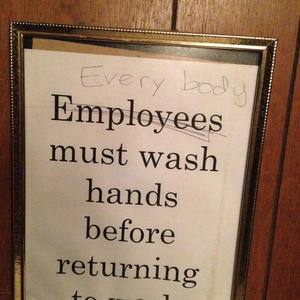 Every body
Employees
must wash
hands
before
returning
to work